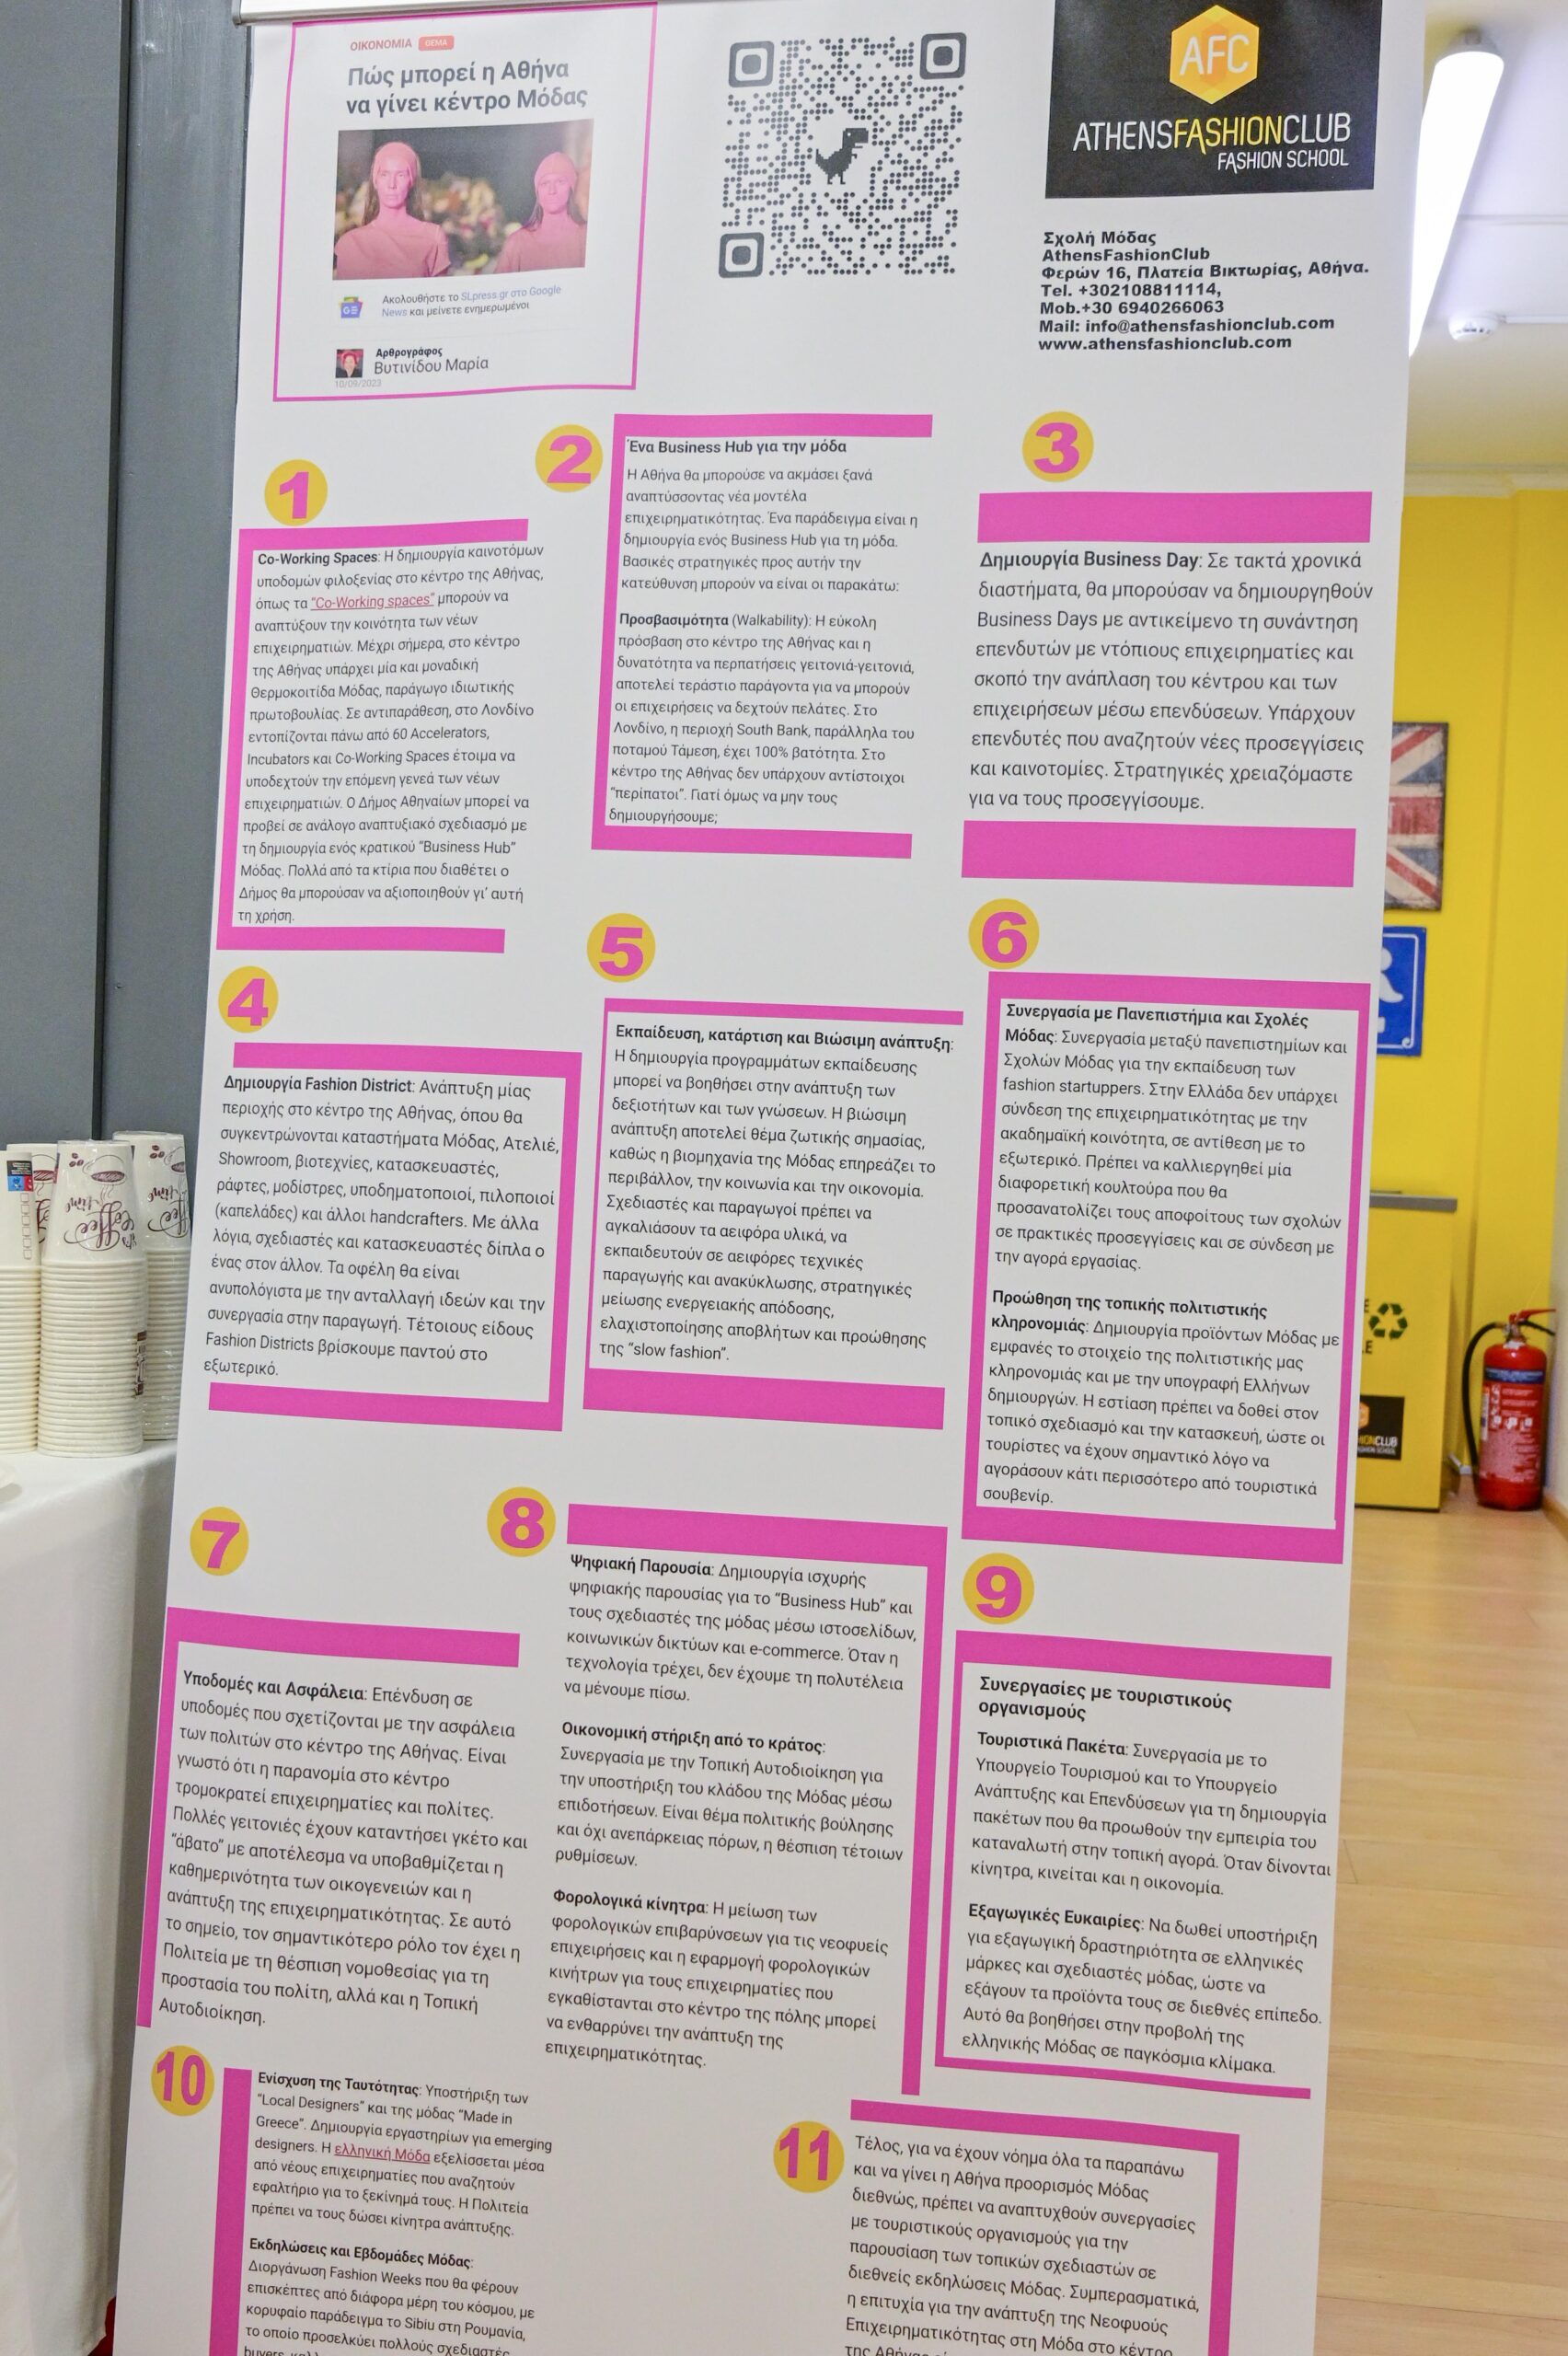 ΟΙΚΟΝΟΜΙΑ ΘΕΜΑ
Πώς μπορεί η Αθήνα
να γίνει κέντρο Μόδας
Ακολουθήστε το SLpress.gr στο Google
News και μείνετε ενημερωμένοι
Αρθρογράφος
Βυτινίδου Μαρία
10/09/2023
AFC
ATHENSFASHIONCLUB
FASHION SCHOOL
Σχολή Μόδας
AthensFashionClub
Φερών 16, Πλατεία Βικτωρίας, Αθήνα.
Tel. +302108811114,
Mob.+30 6940266063
Mail: info@athensfashionclub.com
www.athensfashionclub.com
1
Co-Working Spaces: Η δημιουργία καινοτόμων
υποδομών φιλοξενίας στο κέντρο της Αθήνας,
όπως τα "Co-Working spaces" μπορούν να
αναπτύξουν την κοινότητα των νέων
επιχειρηματιών. Μέχρι σήμερα, στο κέντρο
της Αθήνας υπάρχει μία και μοναδική
Θερμοκοιτίδα Μόδας, παράγωγο ιδιωτικής
πρωτοβουλίας. Σε αντιπαράθεση, στο Λονδίνο
εντοπίζονται πάνω από 60 Accelerators,
Incubators και Co-Working Spaces έτοιμα να
υποδεχτούν την επόμενη γενεά των νέων
επιχειρηματιών. Ο Δήμος Αθηναίων μπορεί να
προβεί σε ανάλογο αναπτυξιακό σχεδιασμό με
τη δημιουργία ενός κρατικού "Business Hub"
Μόδας. Πολλά από τα κτίρια που διαθέτει ο
Δήμος θα μπορούσαν να αξιοποιηθούν γι' αυτή
τη χρήση.
2
Ένα Business Hub για την μόδα
Η Αθήνα θα μπορούσε να ακμάσει ξανά
αναπτύσσοντας νέα μοντέλα
επιχειρηματικότητας. Ένα παράδειγμα είναι η
δημιουργία ενός Business Hub για τη μόδα.
Βασικές στρατηγικές προς αυτήν την
κατεύθυνση μπορούν να είναι οι παρακάτω:
Προσβασιμότητα (Walkability): Η εύκολη
πρόσβαση στο κέντρο της Αθήνας και η
δυνατότητα να περπατήσεις γειτονιά-γειτονιά,
αποτελεί τεράστιο παράγοντα για να μπορούν
οι επιχειρήσεις να δεχτούν πελάτες. Στο
Λονδίνο, η περιοχή South Bank, παράλληλα του
ποταμού Τάμεση, έχει 100% βατότητα. Στο
κέντρο της Αθήνας δεν υπάρχουν αντίστοιχοι
"περίπατοι". Γιατί όμως να μην τους
δημιουργήσουμε;
3
Δημιουργία Business Day: Σε τακτά χρονικά
διαστήματα, θα μπορούσαν να δημιουργηθούν
Business Days με αντικείμενο τη συνάντηση
επενδυτών με ντόπιους επιχειρηματίες και
σκοπό την ανάπλαση του κέντρου και των
επιχειρήσεων μέσω επενδύσεων. Υπάρχουν
επενδυτές που αναζητούν νέες προσεγγίσεις
και καινοτομίες. Στρατηγικές χρειαζόμαστε
για να τους προσεγγίσουμε.
4
Δημιουργία Fashion District: Ανάπτυξη μίας
περιοχής στο κέντρο της Αθήνας, όπου θα
συγκεντρώνονται καταστήματα Μόδας, Ατελιέ,
Showroom, βιοτεχνίες, κατασκευαστές,
ράφτες, μοδίστρες, υποδηματοποιοί, πιλοποιοί
(καπελάδες) και άλλοι handcrafters. Με άλλα
λόγια, σχεδιαστές και κατασκευαστές δίπλα ο
ένας στον άλλον. Τα οφέλη θα είναι
ανυπολόγιστα με την ανταλλαγή ιδεών και την
συνεργασία στην παραγωγή. Τέτοιους είδους
Fashion Districts βρίσκουμε παντού στο
εξωτερικό.
5
Εκπαίδευση, κατάρτιση και Βιώσιμη ανάπτυξη:
Η δημιουργία προγραμμάτων εκπαίδευσης
μπορεί να βοηθήσει στην ανάπτυξη των
δεξιοτήτων και των γνώσεων. Η βιώσιμη
ανάπτυξη αποτελεί θέμα ζωτικής σημασίας,
καθώς η βιομηχανία της Μόδας επηρεάζει το
περιβάλλον, την κοινωνία και την οικονομία.
Σχεδιαστές και παραγωγοί πρέπει να
αγκαλιάσουν τα αειφόρα υλικά, να
εκπαιδευτούν σε αειφόρες τεχνικές
παραγωγής και ανακύκλωσης, στρατηγικές
μείωσης ενεργειακής απόδοσης,
ελαχιστοποίησης αποβλήτων και προώθησης
της "slow fashion".
6
Συνεργασία με Πανεπιστήμια και Σχολές
Μόδας: Συνεργασία μεταξύ πανεπιστημίων και
Σχολών Μόδας για την εκπαίδευση των
fashion startuppers. Στην Ελλάδα δεν υπάρχει
σύνδεση της επιχειρηματικότητας με την
ακαδημαϊκή κοινότητα, σε αντίθεση με το
εξωτερικό. Πρέπει να καλλιεργηθεί μία
διαφορετική κουλτούρα που θα
προσανατολίζει τους αποφοίτους των σχολών
σε πρακτικές προσεγγίσεις και σε σύνδεση με
την αγορά εργασίας.
Προώθηση της τοπικής πολιτιστικής
κληρονομιάς: Δημιουργία προϊόντων Μόδας με
εμφανές το στοιχείο της πολιτιστικής μας
κληρονομιάς και με την υπογραφή Ελλήνων
δημιουργών. Η εστίαση πρέπει να δοθεί στον
τοπικό σχεδιασμό και την κατασκευή, ώστε οι
τουρίστες να έχουν σημαντικό λόγο να
αγοράσουν κάτι περισσότερο από τουριστικά
σουβενίρ.
7
Υποδομές και Ασφάλεια: Επένδυση σε
υποδομές που σχετίζονται με την ασφάλεια
των πολιτών στο κέντρο της Αθήνας. Είναι
γνωστό ότι η παρανομία στο κέντρο
τρομοκρατεί επιχειρηματίες και πολίτες.
Πολλές γειτονιές έχουν καταντήσει γκέτο και
"άβατο" με αποτέλεσμα να υποβαθμίζεται η
καθημερινότητα των οικογενειών και η
ανάπτυξη της επιχειρηματικότητας. Σε αυτό
το σημείο, τον σημαντικότερο ρόλο τον έχει η
Πολιτεία με τη θέσπιση νομοθεσίας για τη
προστασία του πολίτη, αλλά και η Τοπική
Αυτοδιοίκηση.
8
Ψηφιακή Παρουσία: Δημιουργία ισχυρής
ψηφιακής παρουσίας για το "Business Hub" και
τους σχεδιαστές της μόδας μέσω ιστοσελίδων,
κοινωνικών δικτύων και e-commerce. Όταν η
τεχνολογία τρέχει, δεν έχουμε τη πολυτέλεια
να μένουμε πίσω.
Οικονομική στήριξη από το κράτος:
Συνεργασία με την Τοπική Αυτοδιοίκηση για
την υποστήριξη του κλάδου της Μόδας μέσω
επιδοτήσεων. Είναι θέμα πολιτικής βούλησης
και όχι ανεπάρκειας πόρων, η θέσπιση τέτοιων
ρυθμίσεων.
Φορολογικά κίνητρα: Η μείωση των
φορολογικών επιβαρύνσεων για τις νεοφυείς
επιχειρήσεις και η εφαρμογή φορολογικών
κινήτρων για τους επιχειρηματίες που
εγκαθίστανται στο κέντρο της πόλης μπορεί
να ενθαρρύνει την ανάπτυξη της
επιχειρηματικότητας.
9
Συνεργασίες με τουριστικούς
οργανισμούς
Τουριστικά Πακέτα: Συνεργασία με το
Υπουργείο Τουρισμού και το Υπουργείο
Ανάπτυξης και Επενδύσεων για τη δημιουργία
πακέτων που θα προωθούν την εμπειρία του
καταναλωτή στην τοπική αγορά. Όταν δίνονται
κίνητρα, κινείται και η οικονομία.
Εξαγωγικές Ευκαιρίες: Να δωθεί υποστήριξη
για εξαγωγική δραστηριότητα σε ελληνικές
μάρκες και σχεδιαστές μόδας, ώστε να
εξάγουν τα προϊόντα τους σε διεθνές επίπεδο.
Αυτό θα βοηθήσει στην προβολή της
ελληνικής Μόδας σε παγκόσμια κλίμακα.
10
Ενίσχυση της Ταυτότητας: Υποστήριξη των
"Local Designers" και της μόδας "Made in
Greece". Δημιουργία εργαστηρίων για emerging
designers. Η ελληνική Μόδα εξελίσσεται μέσα
από νέους επιχειρηματίες που αναζητούν
εφαλτήριο για το ξεκίνημά τους. Η Πολιτεία
πρέπει να τους δώσει κίνητρα ανάπτυξης.
Εκδηλώσεις και Εβδομάδες Μόδας:
Διοργάνωση Fashion Weeks που θα φέρουν
επισκέπτες από διάφορα μέρη του κόσμου, με
κορυφαίο παράδειγμα το Sibiu στη Ρουμανία,
το οποίο προσελκύει πολλούς σχεδιαστές,
buyers
11
Τέλος, για να έχουν νόημα όλα τα παραπάνω
και να γίνει η Αθήνα προορισμός Μόδας
διεθνώς, πρέπει να αναπτυχθούν συνεργασίες
με τουριστικούς οργανισμούς για την
παρουσίαση των τοπικών σχεδιαστών σε
διεθνείς εκδηλώσεις Μόδας. Συμπερασματικά,
η επιτυχία για την ανάπτυξη της Νεοφυούς
Επιχειρηματικότητας στη Μόδα στο κέντρο
της Αθήνας
Coffee time